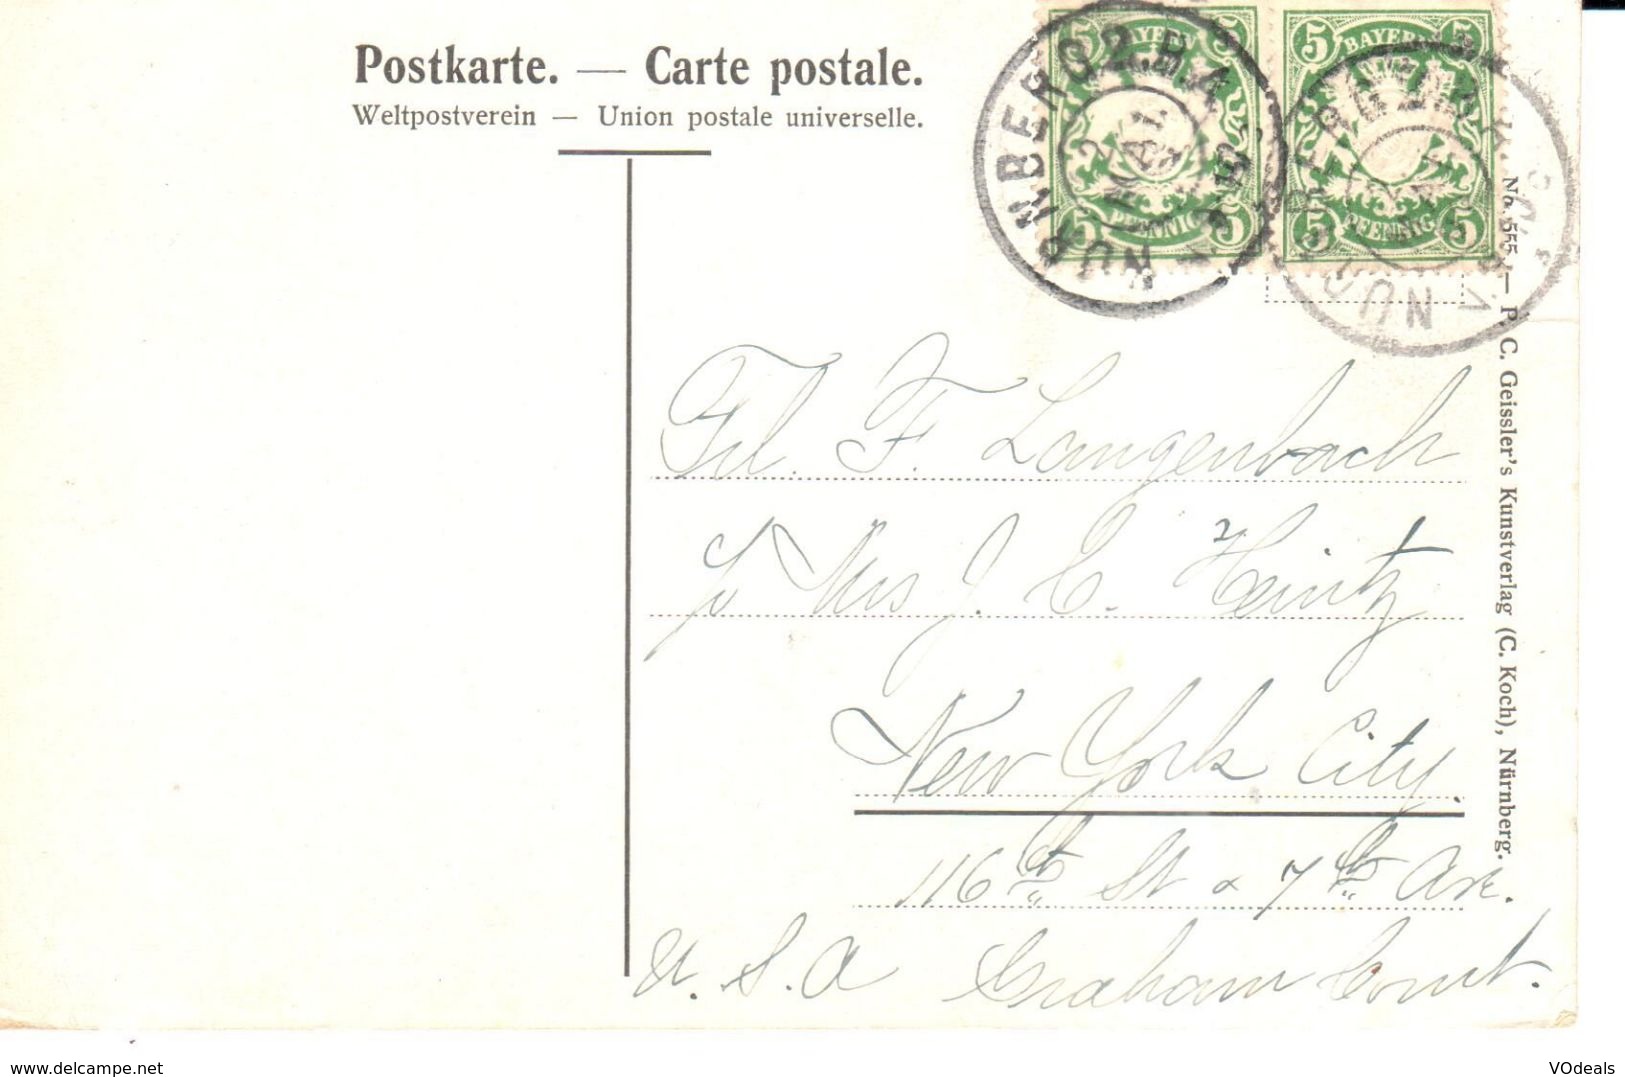 Postkarte. — Carte postale.
Weltpostverein — Union postale universelle.
5 BAYERN 5
5 PFENNIG 5
5 BAYERN 5
5 PFENNIG 5
NÜRNBERG 2 B.A.
2 MAI
No. 555 — P. C. Geissler's Kunstverlag (C. Koch), Nürnberg.
Frl. F. Langenbach
Mrs J. C. Heintz
New York City.
116th St & 7th Ave.
U. S. A Graham Court.
www.delcampe.net
VOdeals